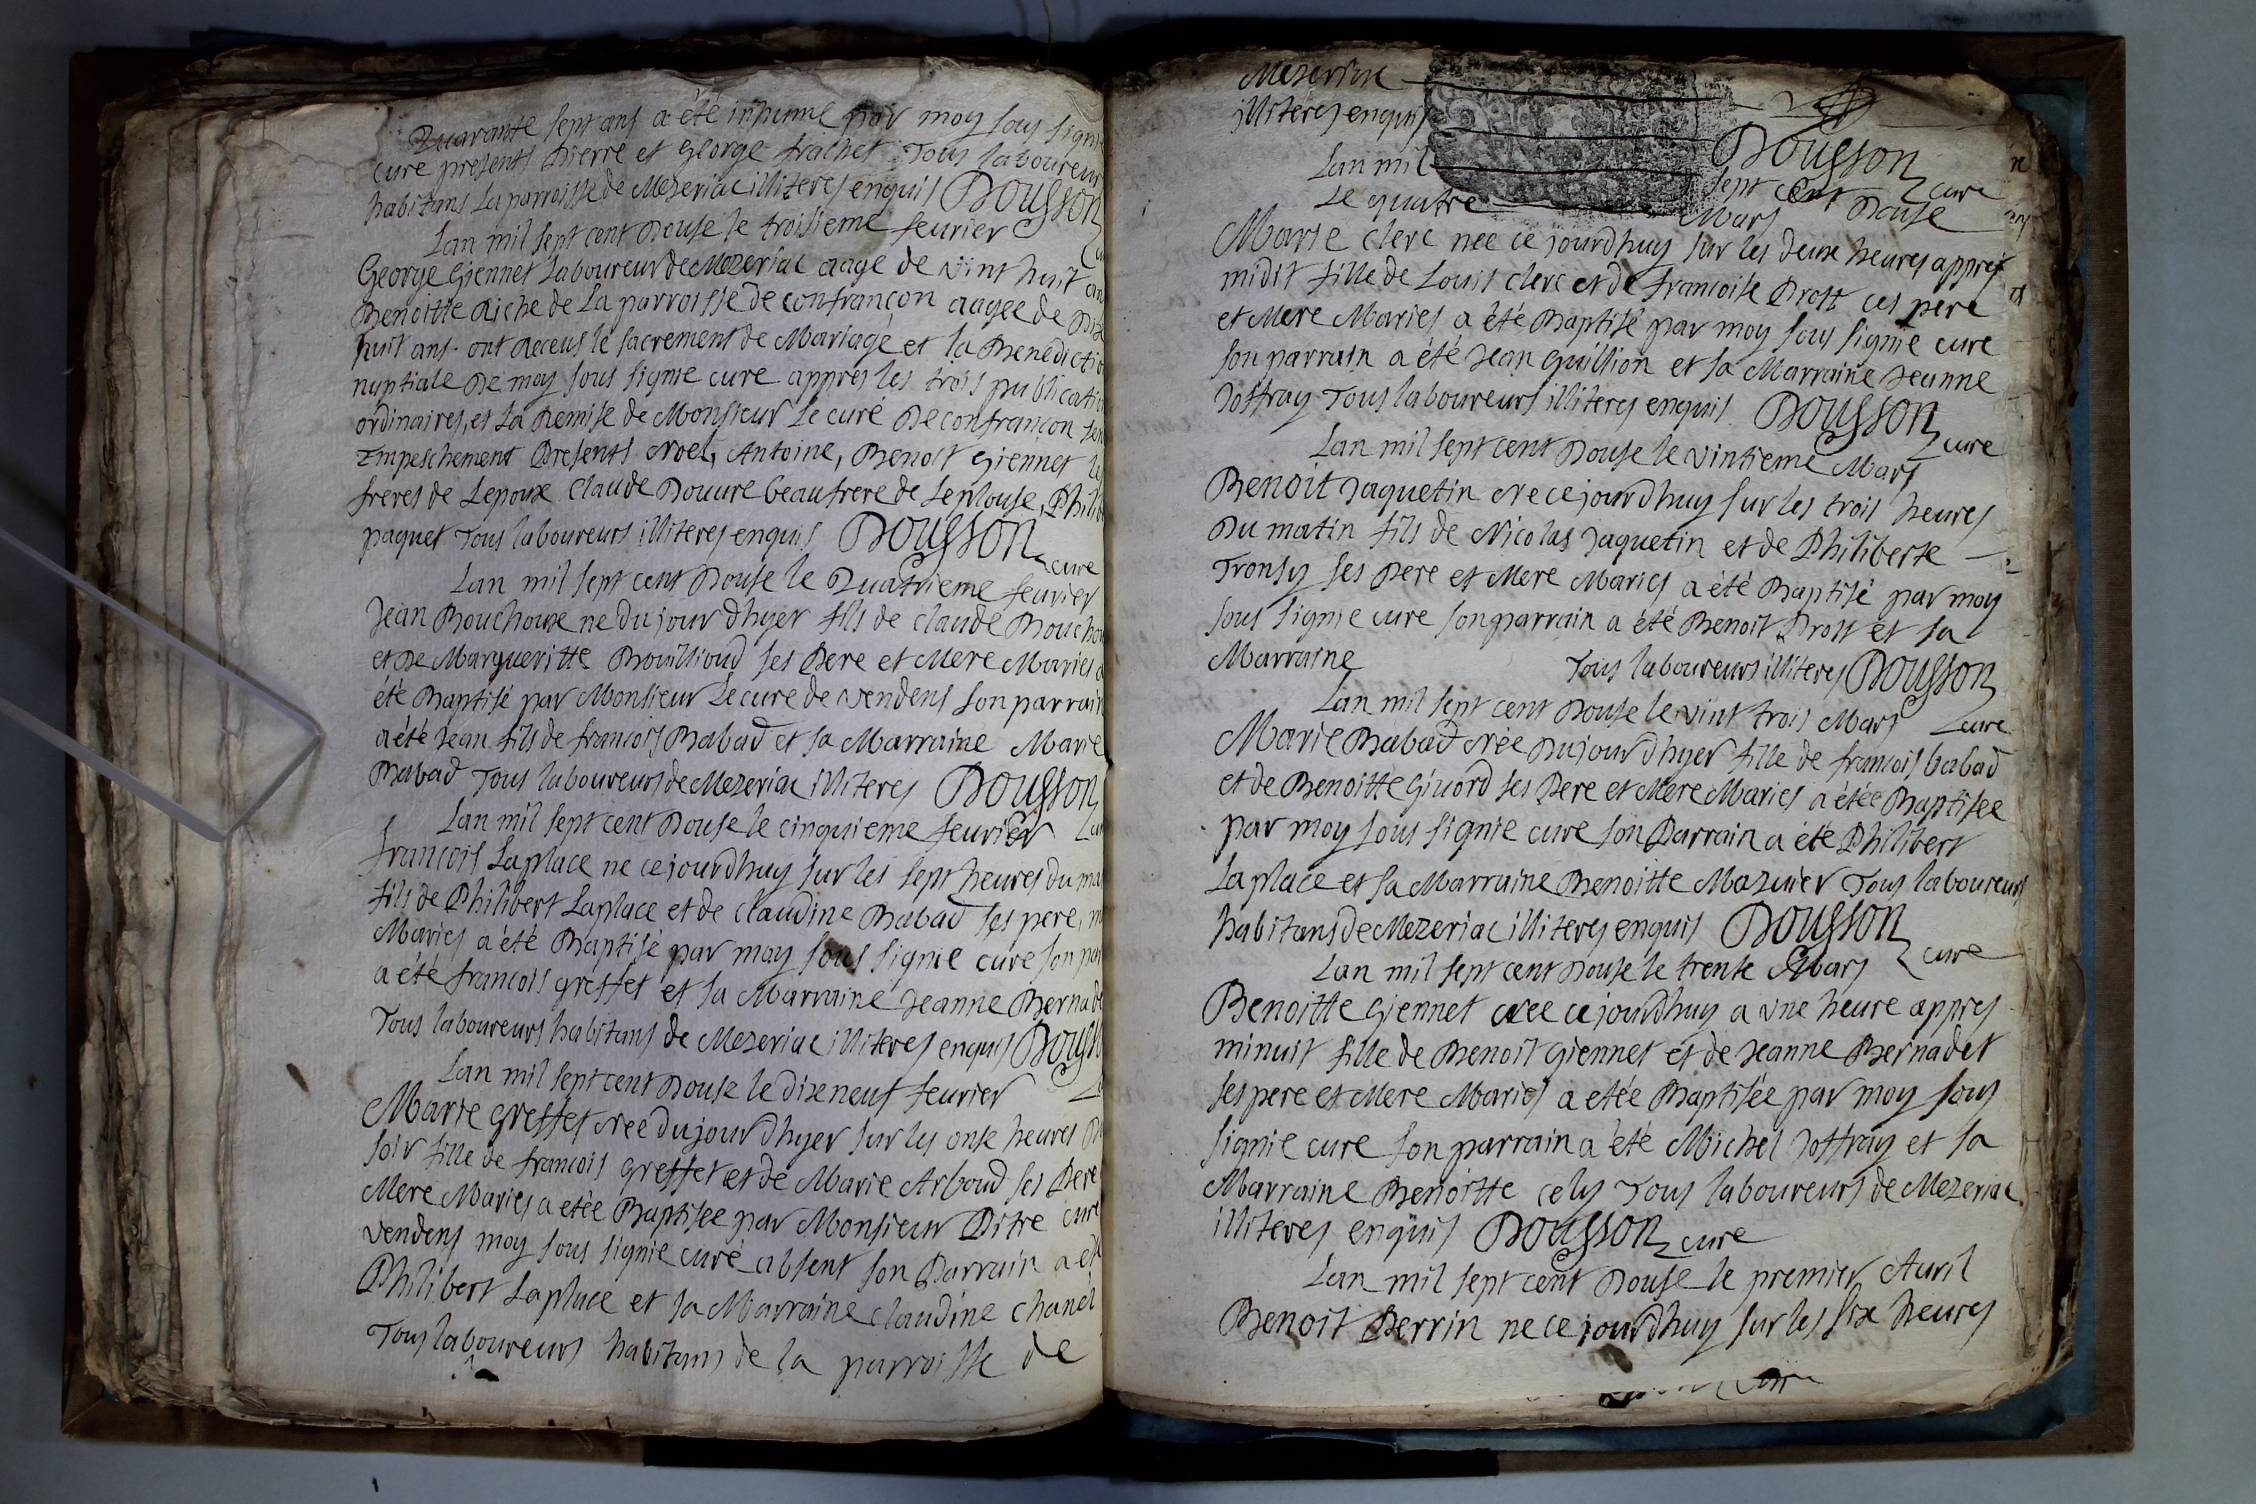 Quarante sept ans a été inhumé par moy sous signé
cure presents pierre et George frachet Tous laboureurs
habitans La parroisse de Mezeriac illiteres enquis Dousson
Lan mil sept cent Douse le troisieme feurier
George Giennet laboureur de Mezeriac aage de vint huit ans
Benoitte Riche de La parroisse de confrançon aagee de Dix
huit ans ont Receus le sacrement de Mariage et la Benediction
nuptiale De moy sous signie cure appres les trois publication
ordinaires, et La Remise de Monsieur Le curé De confrançon
Empeschement Presents Noel, Antoine, Benoit Giennet
freres de Lepoux Claude Douure beaufrere de Leplouse, Philib
paquet Tous laboureurs illiteres enquis Dousson
cure
Lan mil sept cent Douse le Quatrieme feurier
Jean Bouchoux ne du jour dhyer fils de claude Boucho
et De Margueritte Bouillioud ses Pere et Mere Maries a
été Baptisé par Monsieur Le cure de vendens son parrain
a été Jean fils de francois Babad et sa Marraine Marie
Babad Tous laboureurs de Mezeriac illiteres Dousson
Lan mil sept cent Douse le cinquieme feurier
francois Laplace ne ce jourdhuy sur les sept heures du ma
fils de Philibert Laplace et de claudine Babad ses pere, m
Maries a été Baptisé par moy sous signie cure son par
a été francois greffet et sa Marraine Jeanne Bernade
Tous laboureurs habitans de Mezeriac illiteres enquis Douss
Lan mil sept cent Douse le dixneuf feurier
Marie greffet Nee du jour dhyer sur les onse heures
soir fille de francois greffet et de Marie Arboud ses Pere
Mere Maries a etée Baptisee par Monsieur Pitre cure
vendens moy sous signie curé absent son Parrain a et
Philibert Laplace et sa Marraine claudine Chanel
Tous laboureurs habitans de la parroisse de
Mezeriac
illiteres enquis
Dousson
cure
Lan mil sept cent Douse
Le quatre Mars
Marie Clerc nee ce jourdhuy sur les deux heures appres
midit fille de Louis Clerc et de francoise Drost ces pere
et Mere Maries a été Baptisé par moy sous signie cure
son parrain a été Jean guillion et sa Marraine Jeanne
Joffray Tous laboureurs illiteres enquis Dousson
cure
Lan mil sept cent Douse le vintieme Mars
Benoit Jaquetin Ne ce jourdhuy sur les trois heures
Du matin fils de Nicolas Jaquetin et de Philiberte
Tronsy ses Pere et Mere Maries a été Baptisé par moy
sous signie cure son parrain a été Benoit Drost et sa
Marraine Tous laboureurs illiteres Dousson
cure
Lan mil sept cent Douse le vint trois Mars
Marie Babad Née Du jour dhyer fille de francois babad
et de Benoitte Giuord ses Pere et Mere Maries a étée Baptisee
par moy sous signie cure son Parrain a été Philibert
Laplace et sa Marraine Benoitte Mazuier Tous laboureurs
habitans de Mezeriac illiteres enquis Dousson
cure
Lan mil sept cent Douse le trente Mars
Benoitte Giennet Nee ce jourdhuy a vne heure appres
minuit fille de Benoit Giennet et de Jeanne Bernadet
ses pere et Mere Maries a etée Baptisée par moy sous
signie cure son parrain a été Michel Joffray et sa
Marraine Benoitte cely Tous laboureurs de Mezeriac
illiteres enquis Dousson cure
Lan mil sept cent Douse le premier Auril
Benoit Perrin ne ce jourdhuy sur les six heures